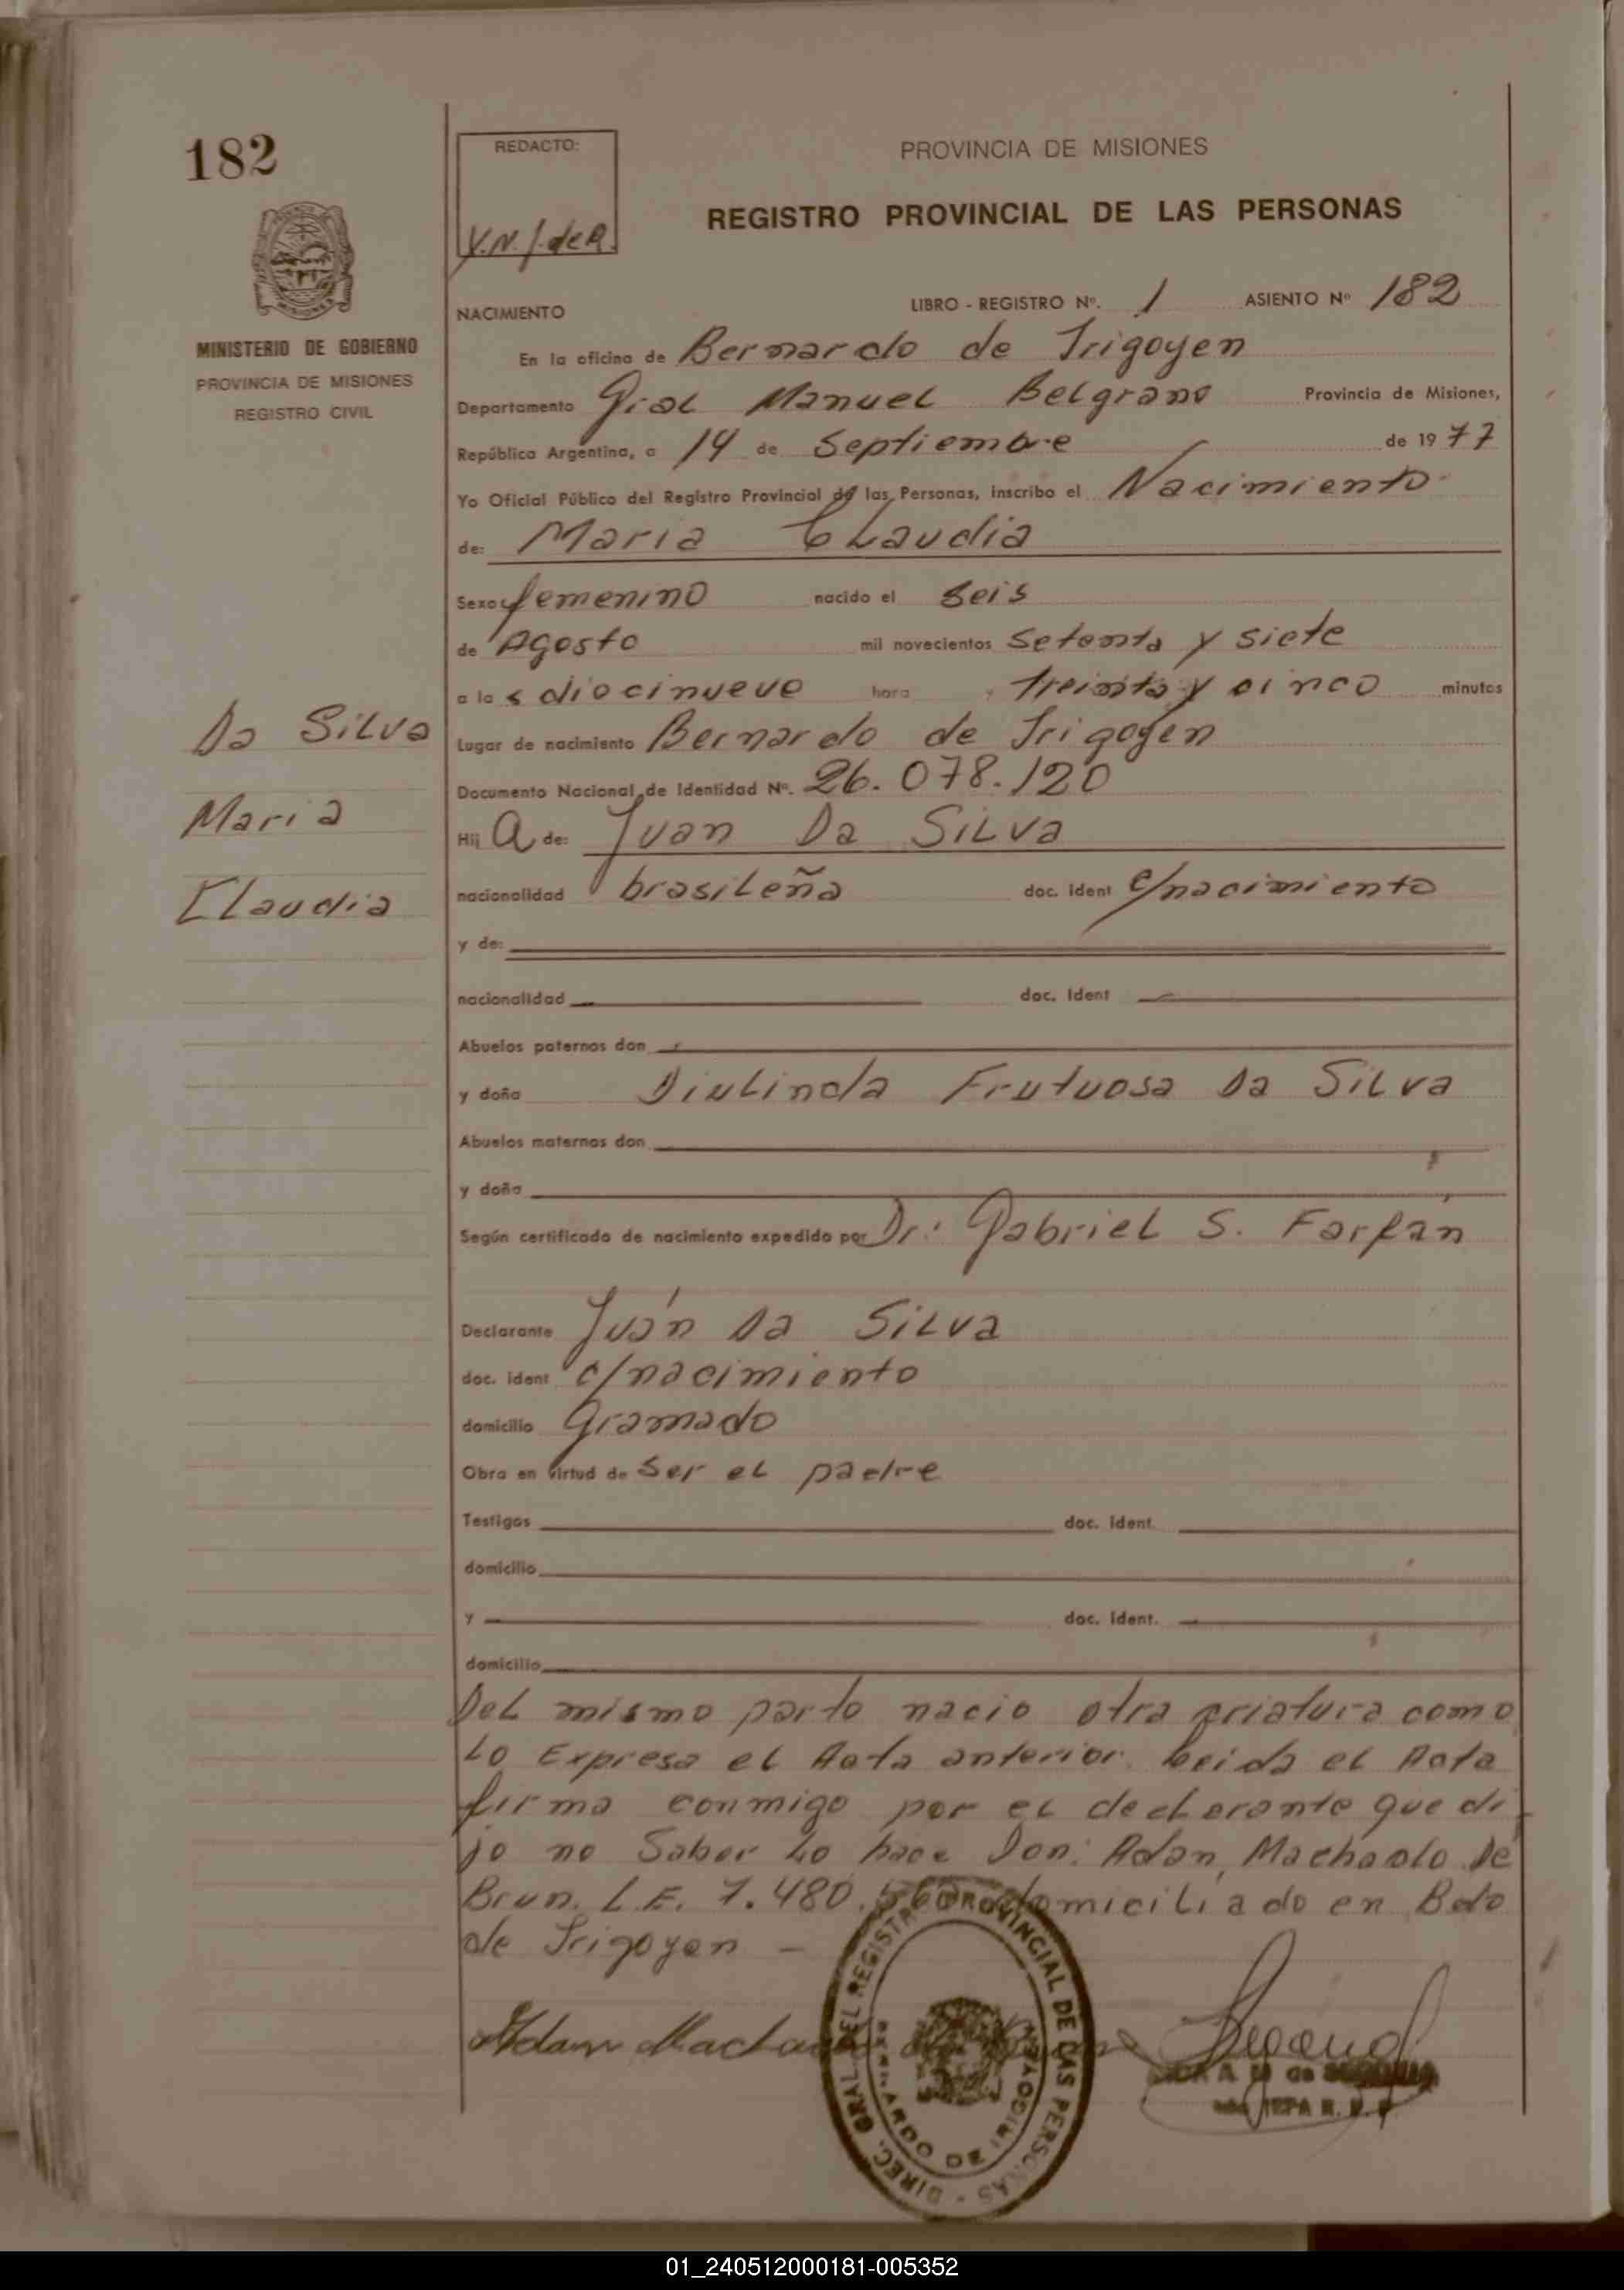 182
REDACTO:
PROVINCIA DE MISIONES
REGISTRO PROVINCIAL DE LAS PERSONAS
MINISTERIO DE GOBIERNO
PROVINCIA DE MISIONES
REGISTRO CIVIL
NACIMIENTO LIBRO - REGISTRO Nº. 1 ASIENTO Nº 182
En la oficina de Bernardo de Irigoyen
Departamento Gral Manuel Belgrano Provincia de Misiones,
República Argentina, a 14 de Septiembre de 1977
Yo Oficial Público del Registro Provincial de las Personas, inscribo el Nacimiento
de: Maria Claudia
Sexo femenino nacido el seis
de Agosto mil novecientos setenta y siete
a las diecinueve hora y treinta y cinco minutos
Da Silva
Lugar de nacimiento Bernardo de Irigoyen
Documento Nacional de Identidad Nº. 26.078.120
Maria
Hij a de: Juan Da Silva
Claudia
nacionalidad brasileña doc. ident c/nacimiento
y de:
nacionalidad doc. ident
Abuelos paternos don
y doña Frutuosa Da Silva
Abuelos maternos don
y doña
Según certificado de nacimiento expedido por Dr: Gabriel S. Farfán
Declarante Juán Da Silva
doc. ident c/nacimiento
domicilio Gramado
Obra en virtud de ser el padre
Testigos doc. ident.
domicilio
y doc. ident.
domicilio
Del mismo parto nacio otra criatura como
lo Expresa el Acta anterior. Leida el Acta
firma conmigo por el declarante que di
jo no saber lo hace Don: Adan Machado De
Brun. L.E. 7.480. domiciliado en Bdo
de Irigoyen -
Adam
DIREC. GRAL DEL REGISTRO PROVINCIAL DE LAS PERSONAS
BERNARDO DE IRIGOYEN
01_240512000181-005352